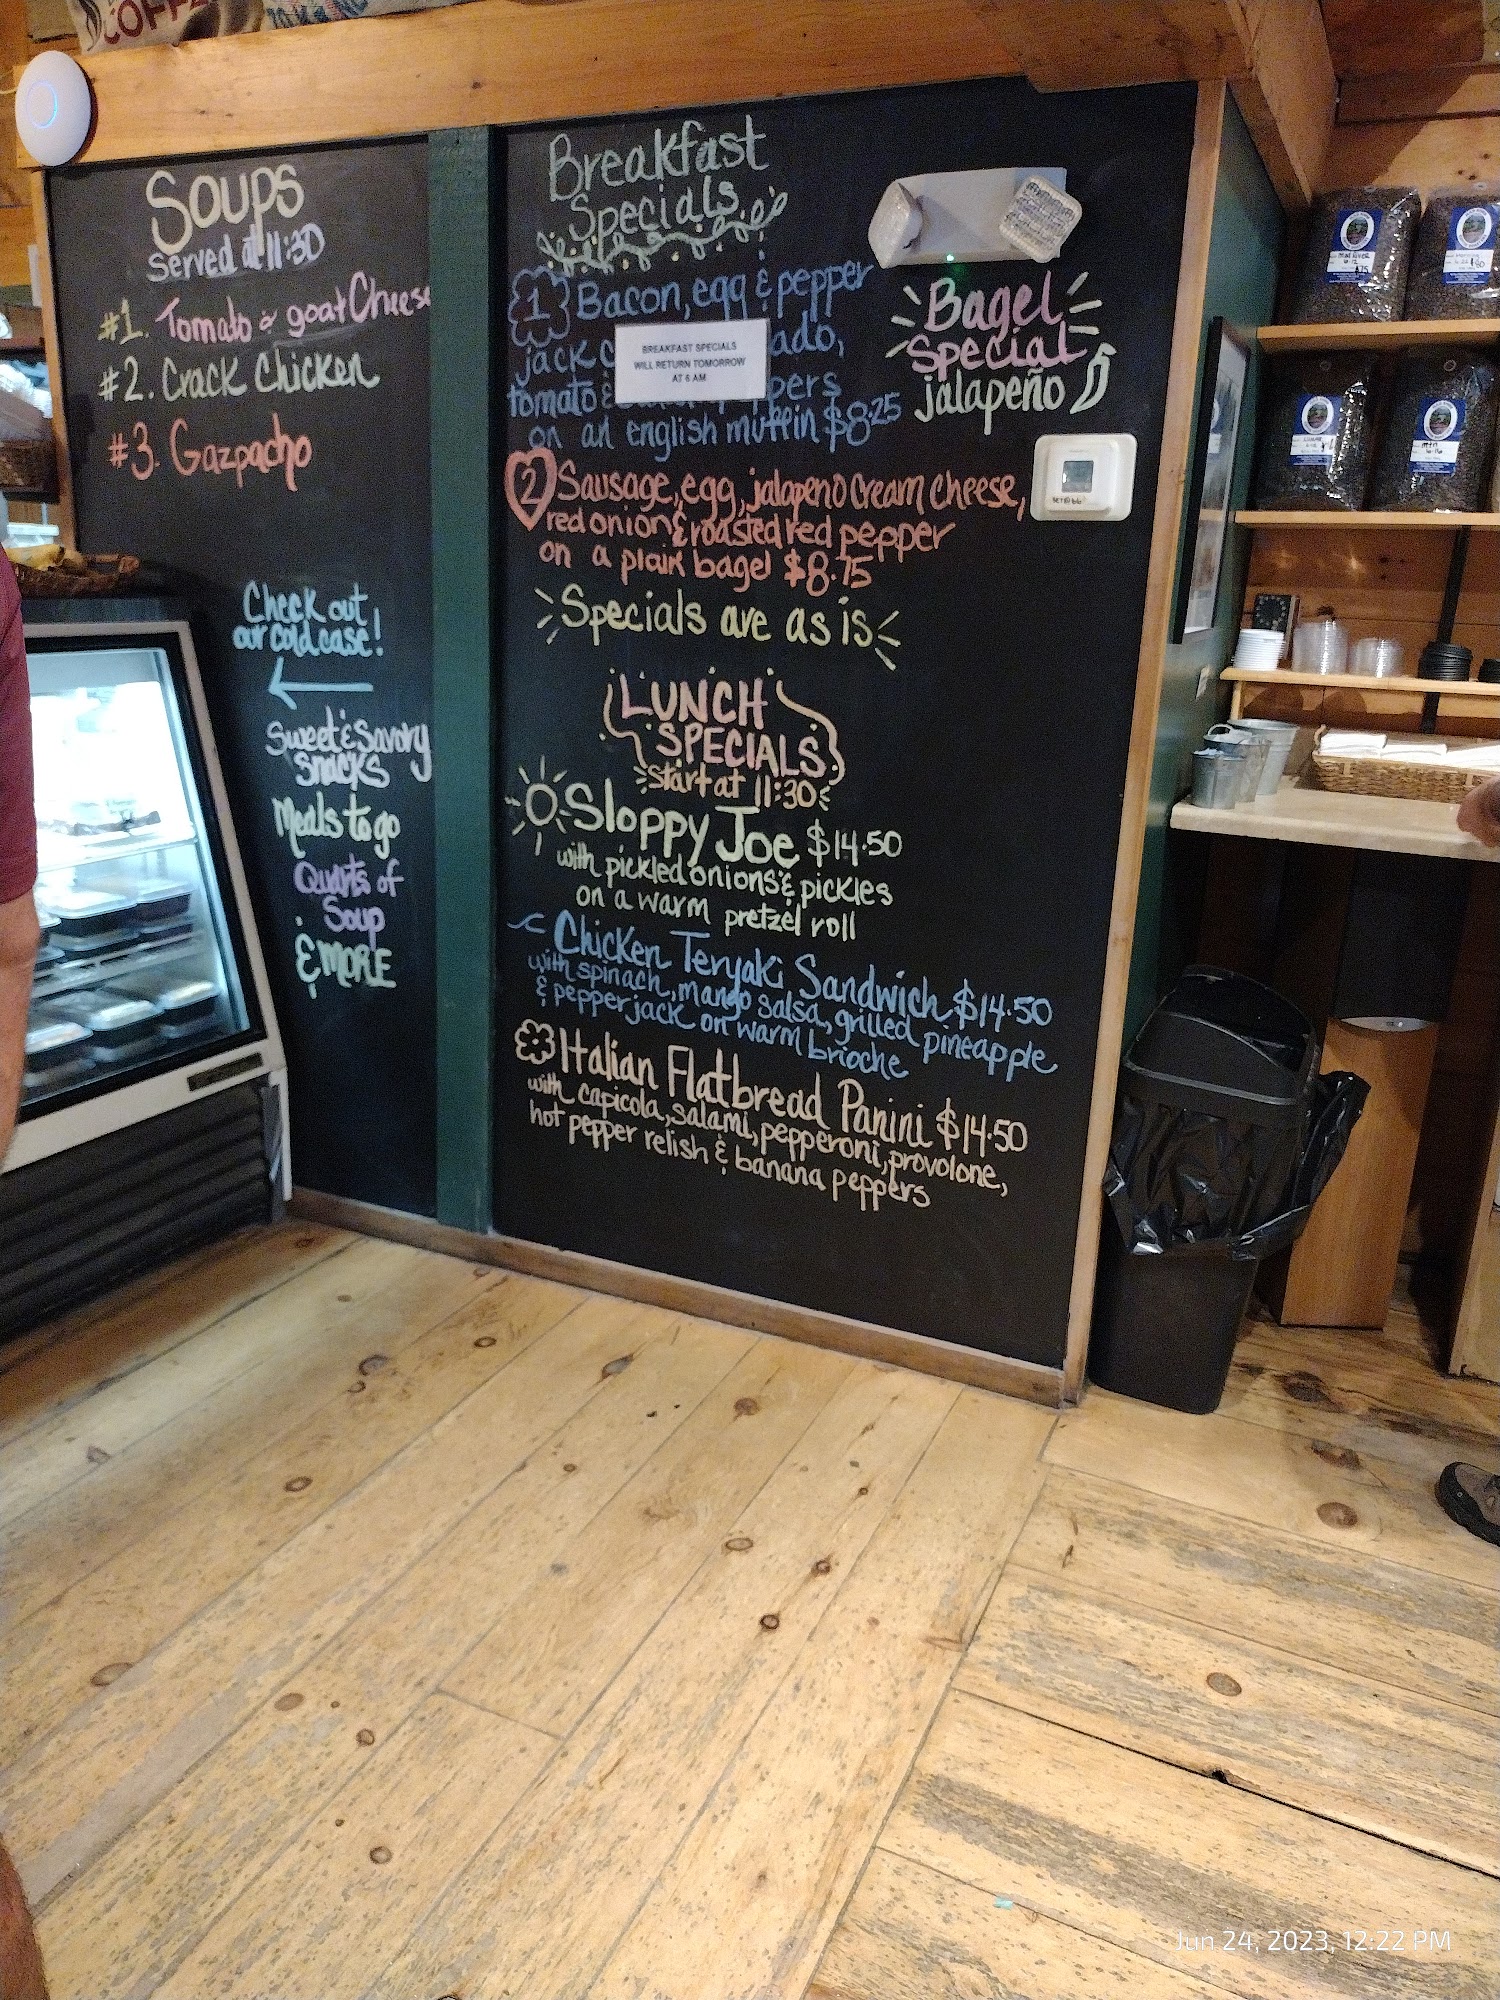 COFFEE
Soups
Served at 11:30
#1. Tomato & goat Cheese
#2. Crack Chicken
#3. Gazpacho
Check out
our cold case!
Sweet & Savory
snacks
Meals to go
Quarts of
Soup
& MORE
Breakfast
Specials
1 Bacon, egg & pepper
jack
tomato &
on an english muffin $8.25
BREAKFAST SPECIALS
WILL RETURN TOMORROW
AT 6 AM
Bagel
Special
jalapeño
2 Sausage, egg, jalapeno cream cheese,
red onion & roasted red pepper
on a plain bagel $8.75
Specials are as is
LUNCH
SPECIALS
start at 11:30
Sloppy Joe $14.50
with pickled onions & pickles
on a warm pretzel roll
Chicken Teryaki Sandwich $14.50
with spinach, mango salsa, grilled pineapple
& pepperjack on warm brioche
Italian Flatbread Panini $14.50
with capicola, salami, pepperoni, provolone,
hot pepper relish & banana peppers
Jun 24, 2023, 12:22 PM